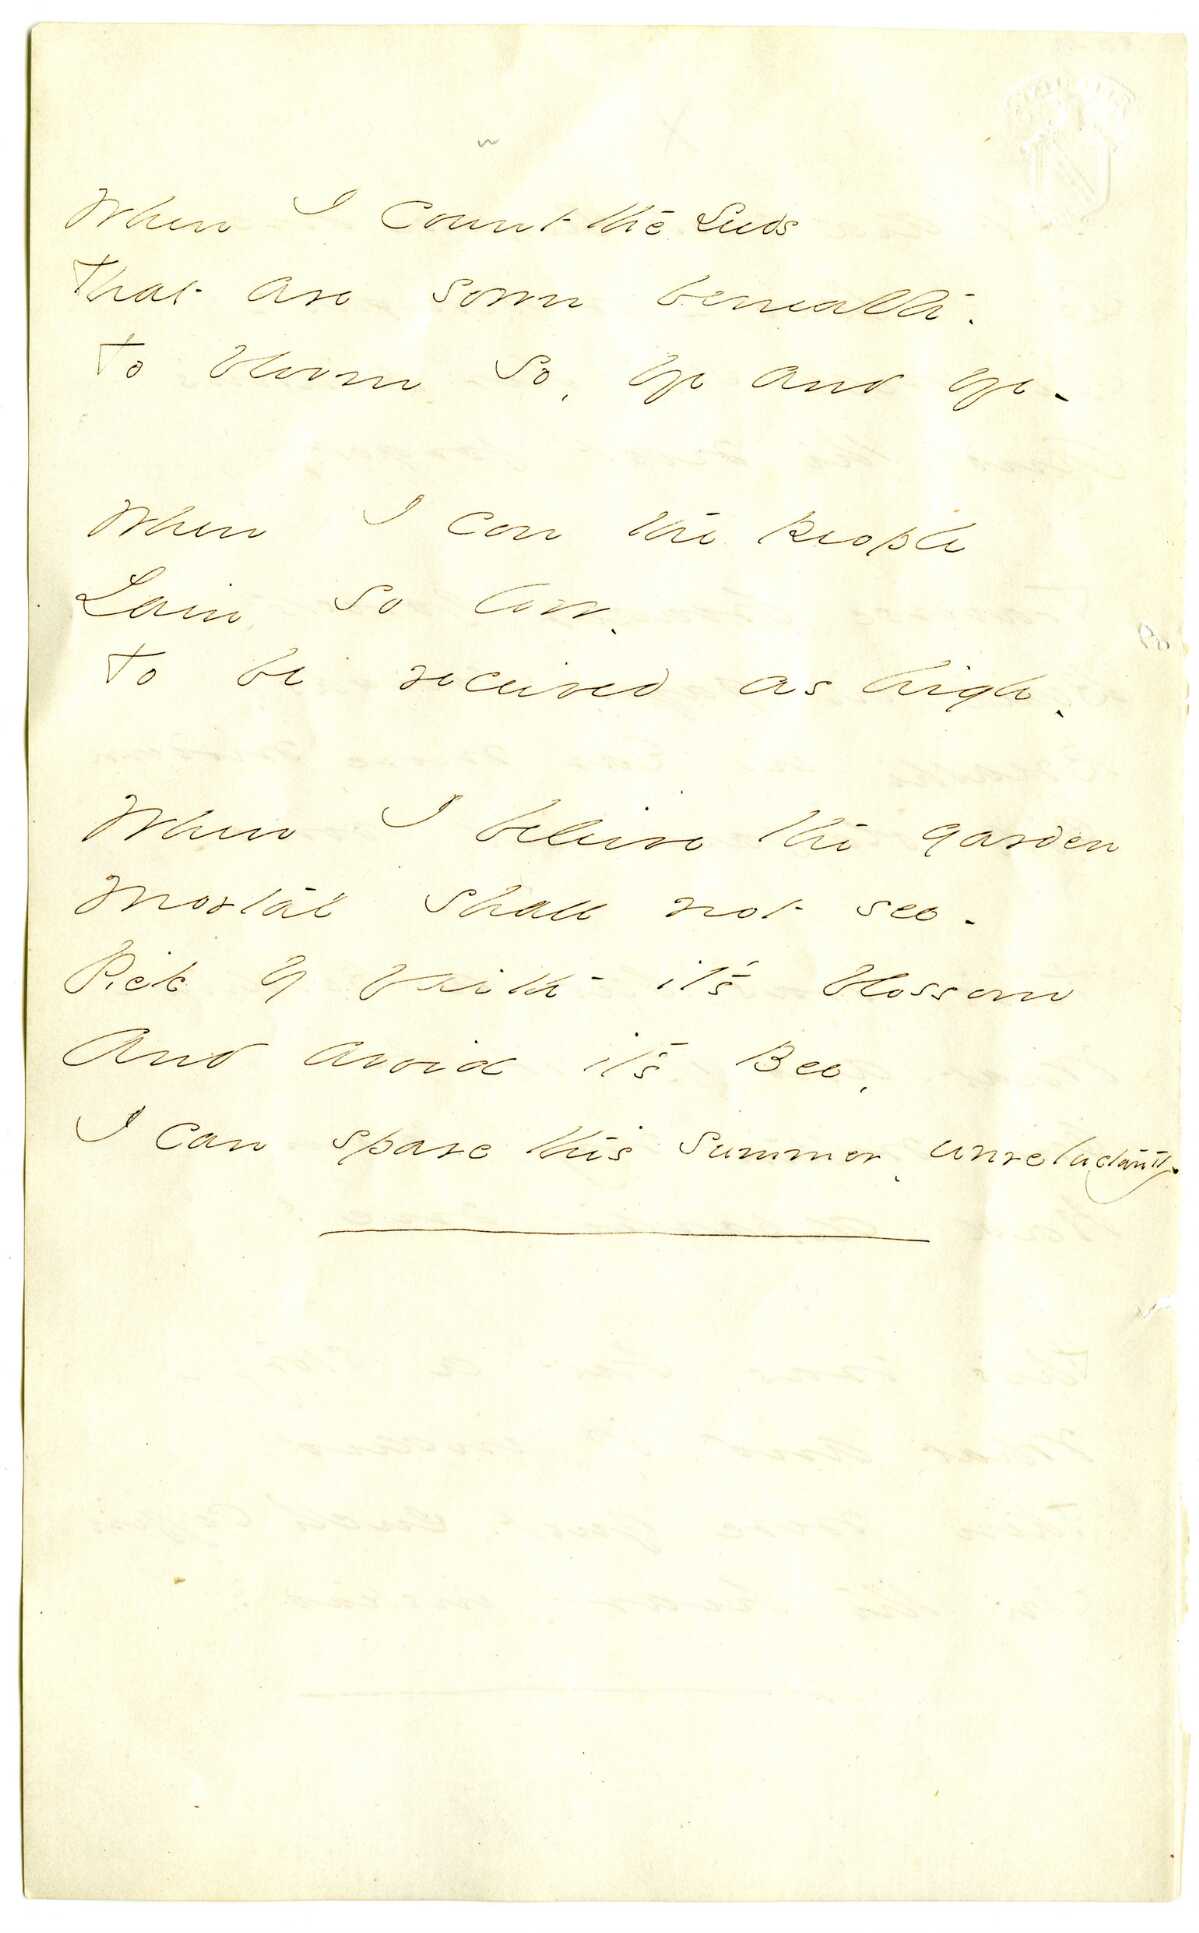 When I count the seeds
That are sown beneath -
To bloom so, bye and bye -
When I con the people
Lain so low -
To be received as high -
When I believe the garden
Mortal shall not see -
Pick by faith it's blossom
And avoid it's Bee,
I can spare this summer - unreluctantly.